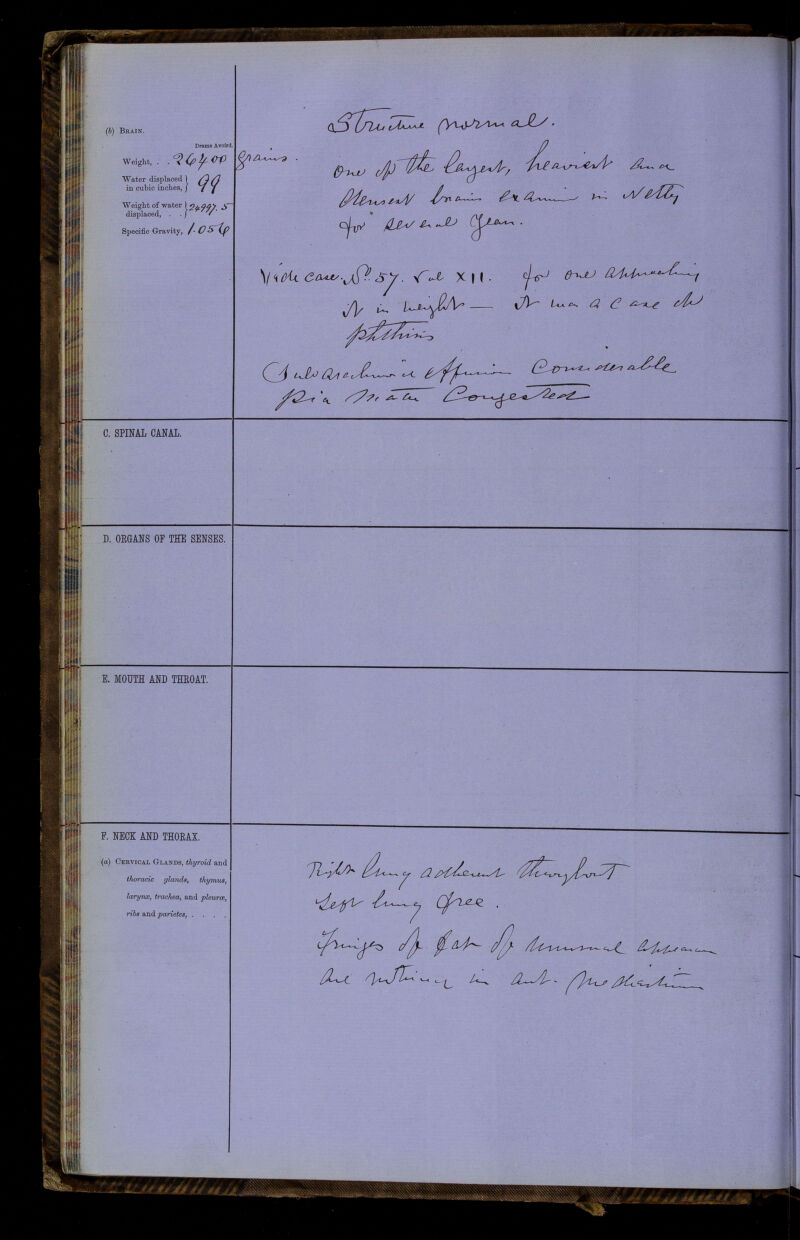 (b) BRAIN.
Drams Avoird.
Weight, . . 26400 grains.
Water displaced in cubic inches, } 99
Weight of water displaced, . . } 24997.5
Specific Gravity, 1.056
Structure normal.
One of the largest, heaviest and
densest brains examin in Netley
for several years.
Vide case. No. 57. Vol XII. for one approaching
it in weight — it was a case of
phthisis
Subarachnoid effusion Considerable
Pia Mater Congested
C. SPINAL CANAL.
D. ORGANS OF THE SENSES.
E. MOUTH AND THROAT.
F. NECK AND THORAX.
(a) CERVICAL GLANDS, thyroid and
thoracic glands, thymus,
larynx, trachea, and pleuræ,
ribs and parietes, . . . .
Right lung adherent throughout
Left lung free.
fringes of fat of unusual
are in ant. Mediastinum